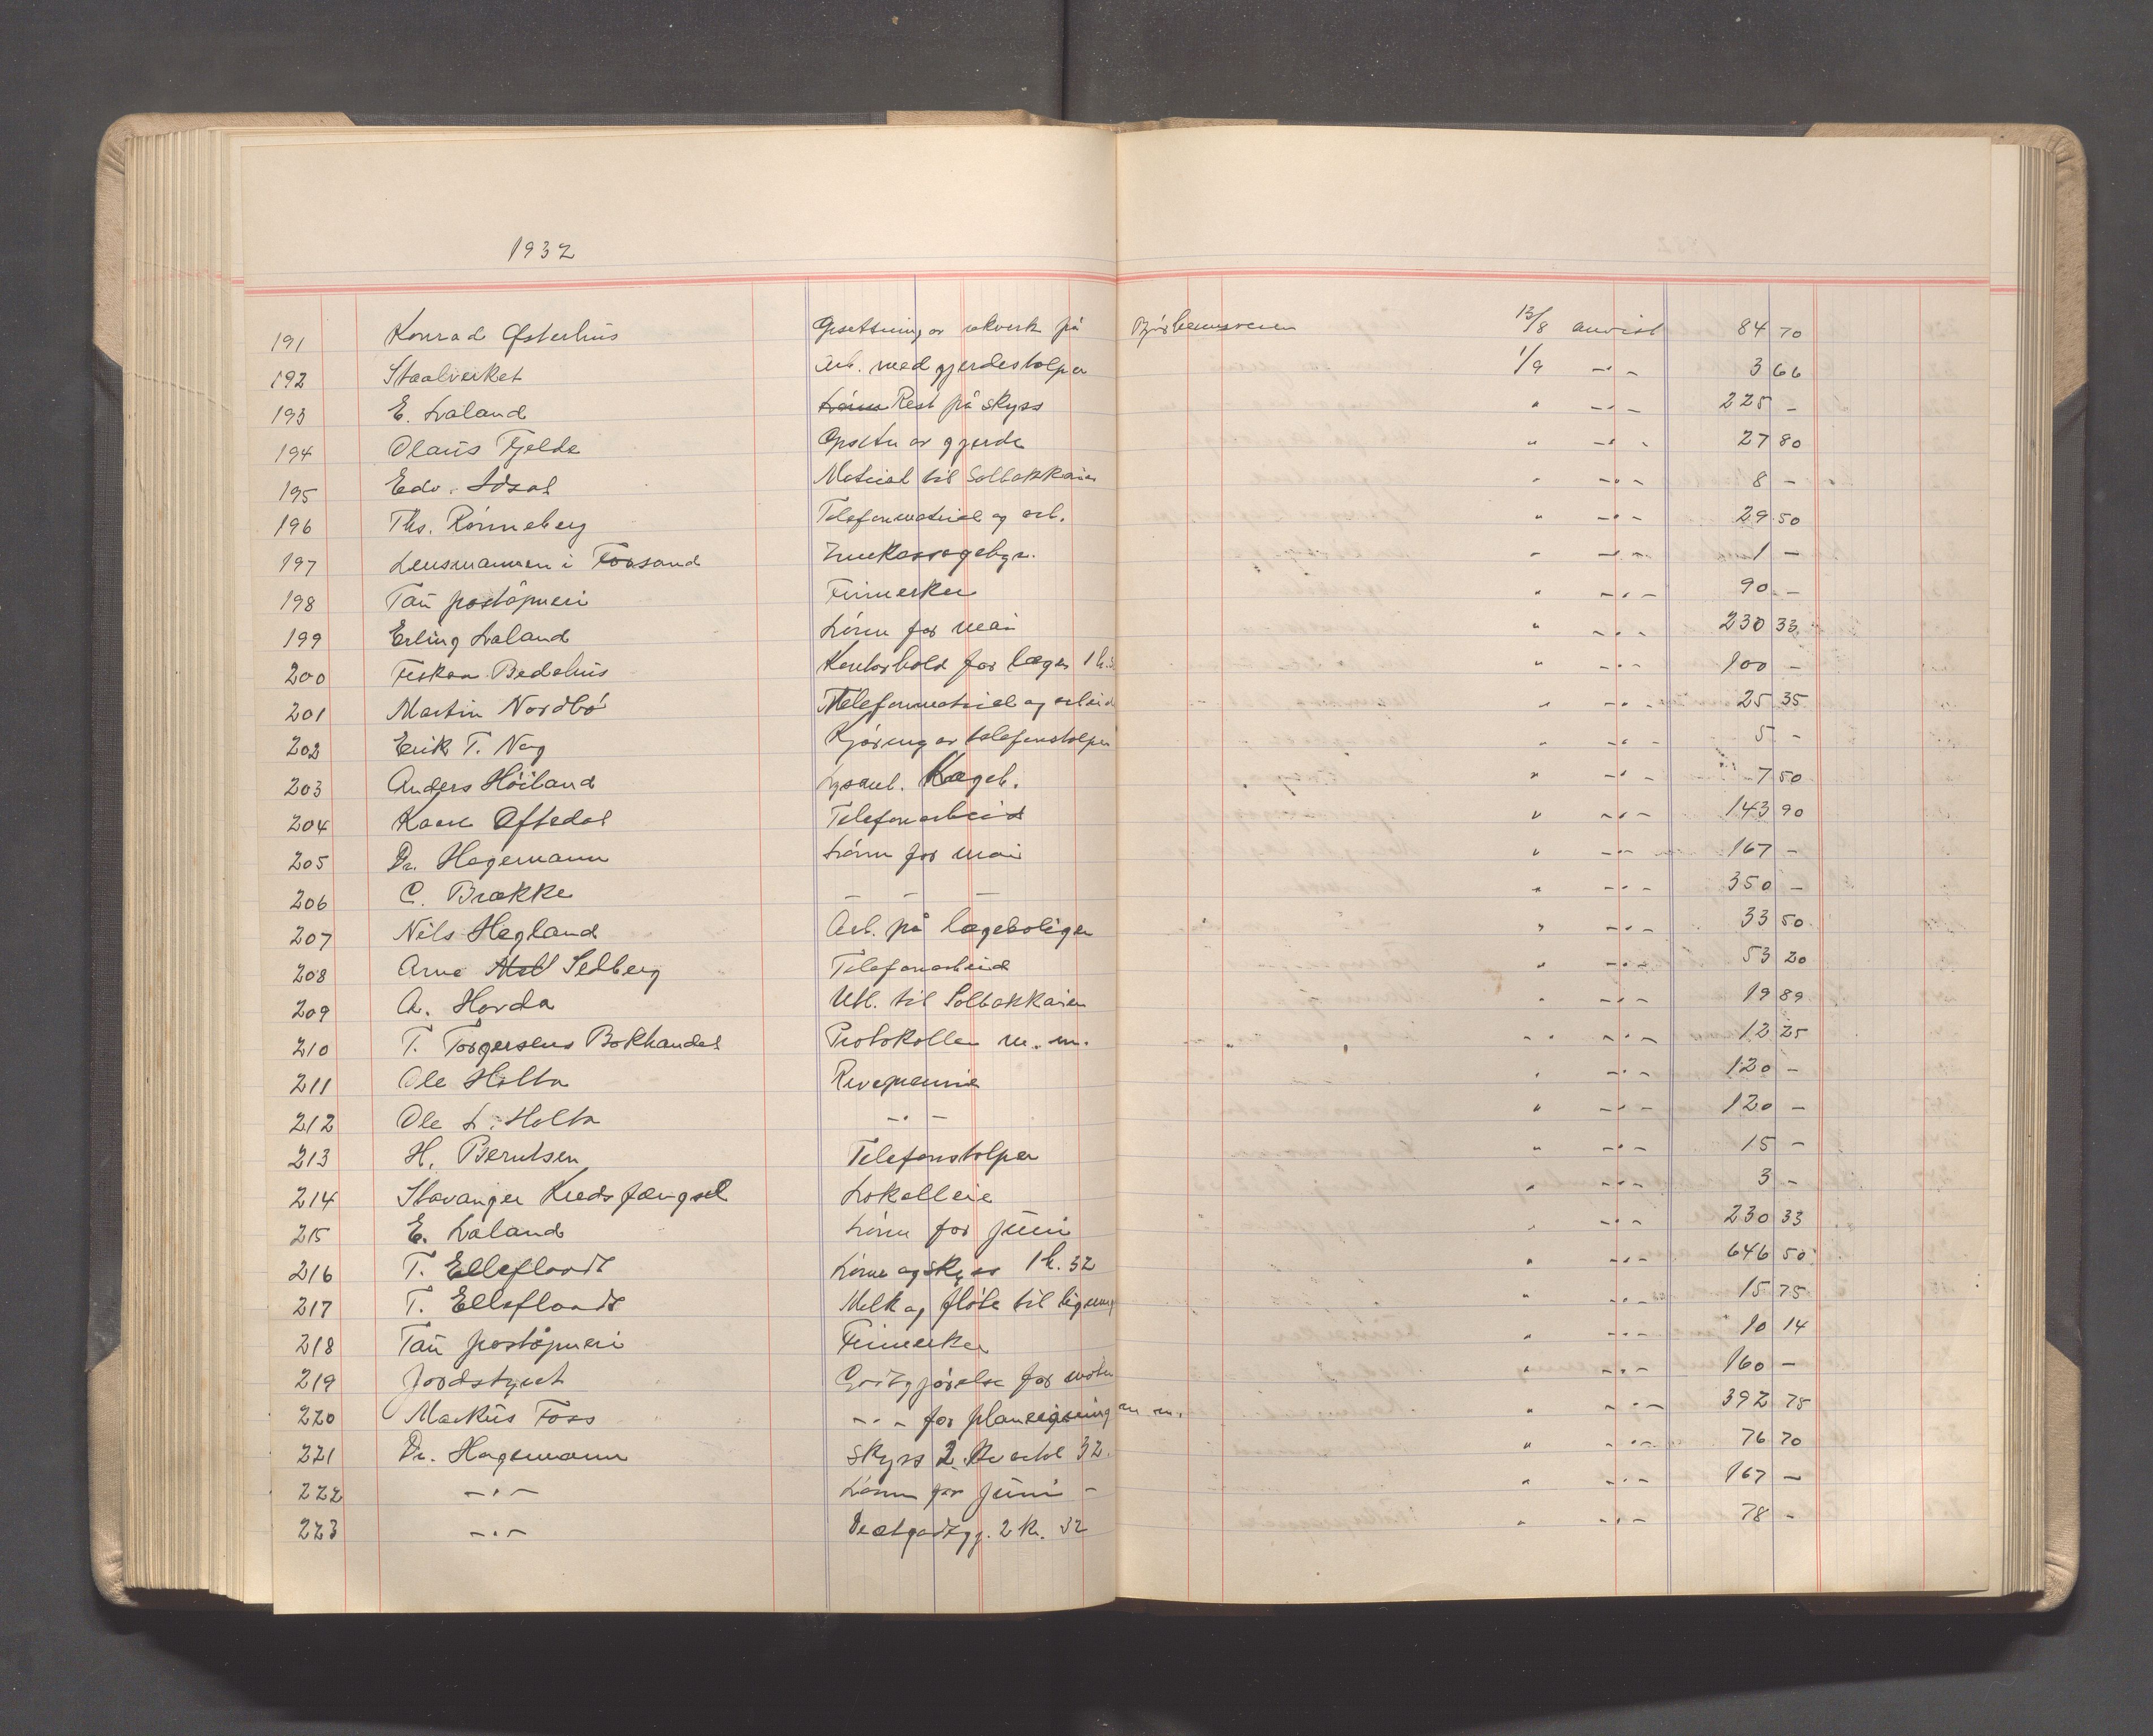 1932
191 Konrad Østerhus Opsettning av rekverk på Bjørheimsveien 13/8 anvist 84 70
192 Staalverket Arb. med gjerdestolper 1/9 -"- 3 66
193 E. Laland Rest på skyss " -"- 225 -
194 Olaus Fjelde Opsett av gjerde " -"- 27 80
195 Edv. Idsal Material til Solbakkaien " -"- 8 -
196 Ths. Rønneberg Telefonmateriel og arb. " -"- 29 50
197 Lensmannen i Forsand Innkassogebyr. " -"- 1 -
198 Tau postøpneri Frimerker " -"- 90 -
199 Erling Laland Lønn for mai " -"- 230 33
200 Fiskaa Bedehus Kontorhold for læger 1 h. " -"- 100 -
201 Martin Nordbø Telefonmateriel og arbeid " -"- 25 35
202 Erik T. Nag Kjøring av telefonstolper " -"- 5 -
203 Anders Høiland Lysanl. Lægeb. " -"- 7 50
204 Kaare Oftedal Telefonarbeid " -"- 143 90
205 Dr. Hagemann Lønn for mai " -"- 167 -
206 C. Brække - - - " -"- 350 -
207 Nils Hegland Arb. på lægeboligen " -"- 33 50
208 Arne Selberg Telefonarbeid " -"- 53 20
209 A. Horda Utl. til Solbakkaien " -"- 19 89
210 T. Torgersens Bokhandel Protokoller m. m. " -"- 12 25
211 Ole Holta Revepremie " -"- 120 -
212 Ole L. Holta -"- " -"- 120 -
213 H. Berntsen Telefonstolper " -"- 15 -
214 Stavanger Kredsfængsel Lokalleie " -"- 3 -
215 E. Laland Lønn for juni " -"- 230 33
216 T. Ellefloadt Lønn og skyss 1 h. 32 " -"- 646 50
217 T. Ellefloadt Melk og fløte til ligning " -"- 15 75
218 Tau postøpneri Frimerker " -"- 10 14
219 Jordstyret Godtgjørelse for møter " -"- 160 -
220 Markus Foss -"- for planeigning m m. " -"- 392 75
221 Dr. Hagemann Skyss 2. kvartal 32. " -"- 76 70
222 -"- Lønn for juni - " -"- 167 -
223 -"- Diætgodtgj. 2 k. 32 " -"- 78 -